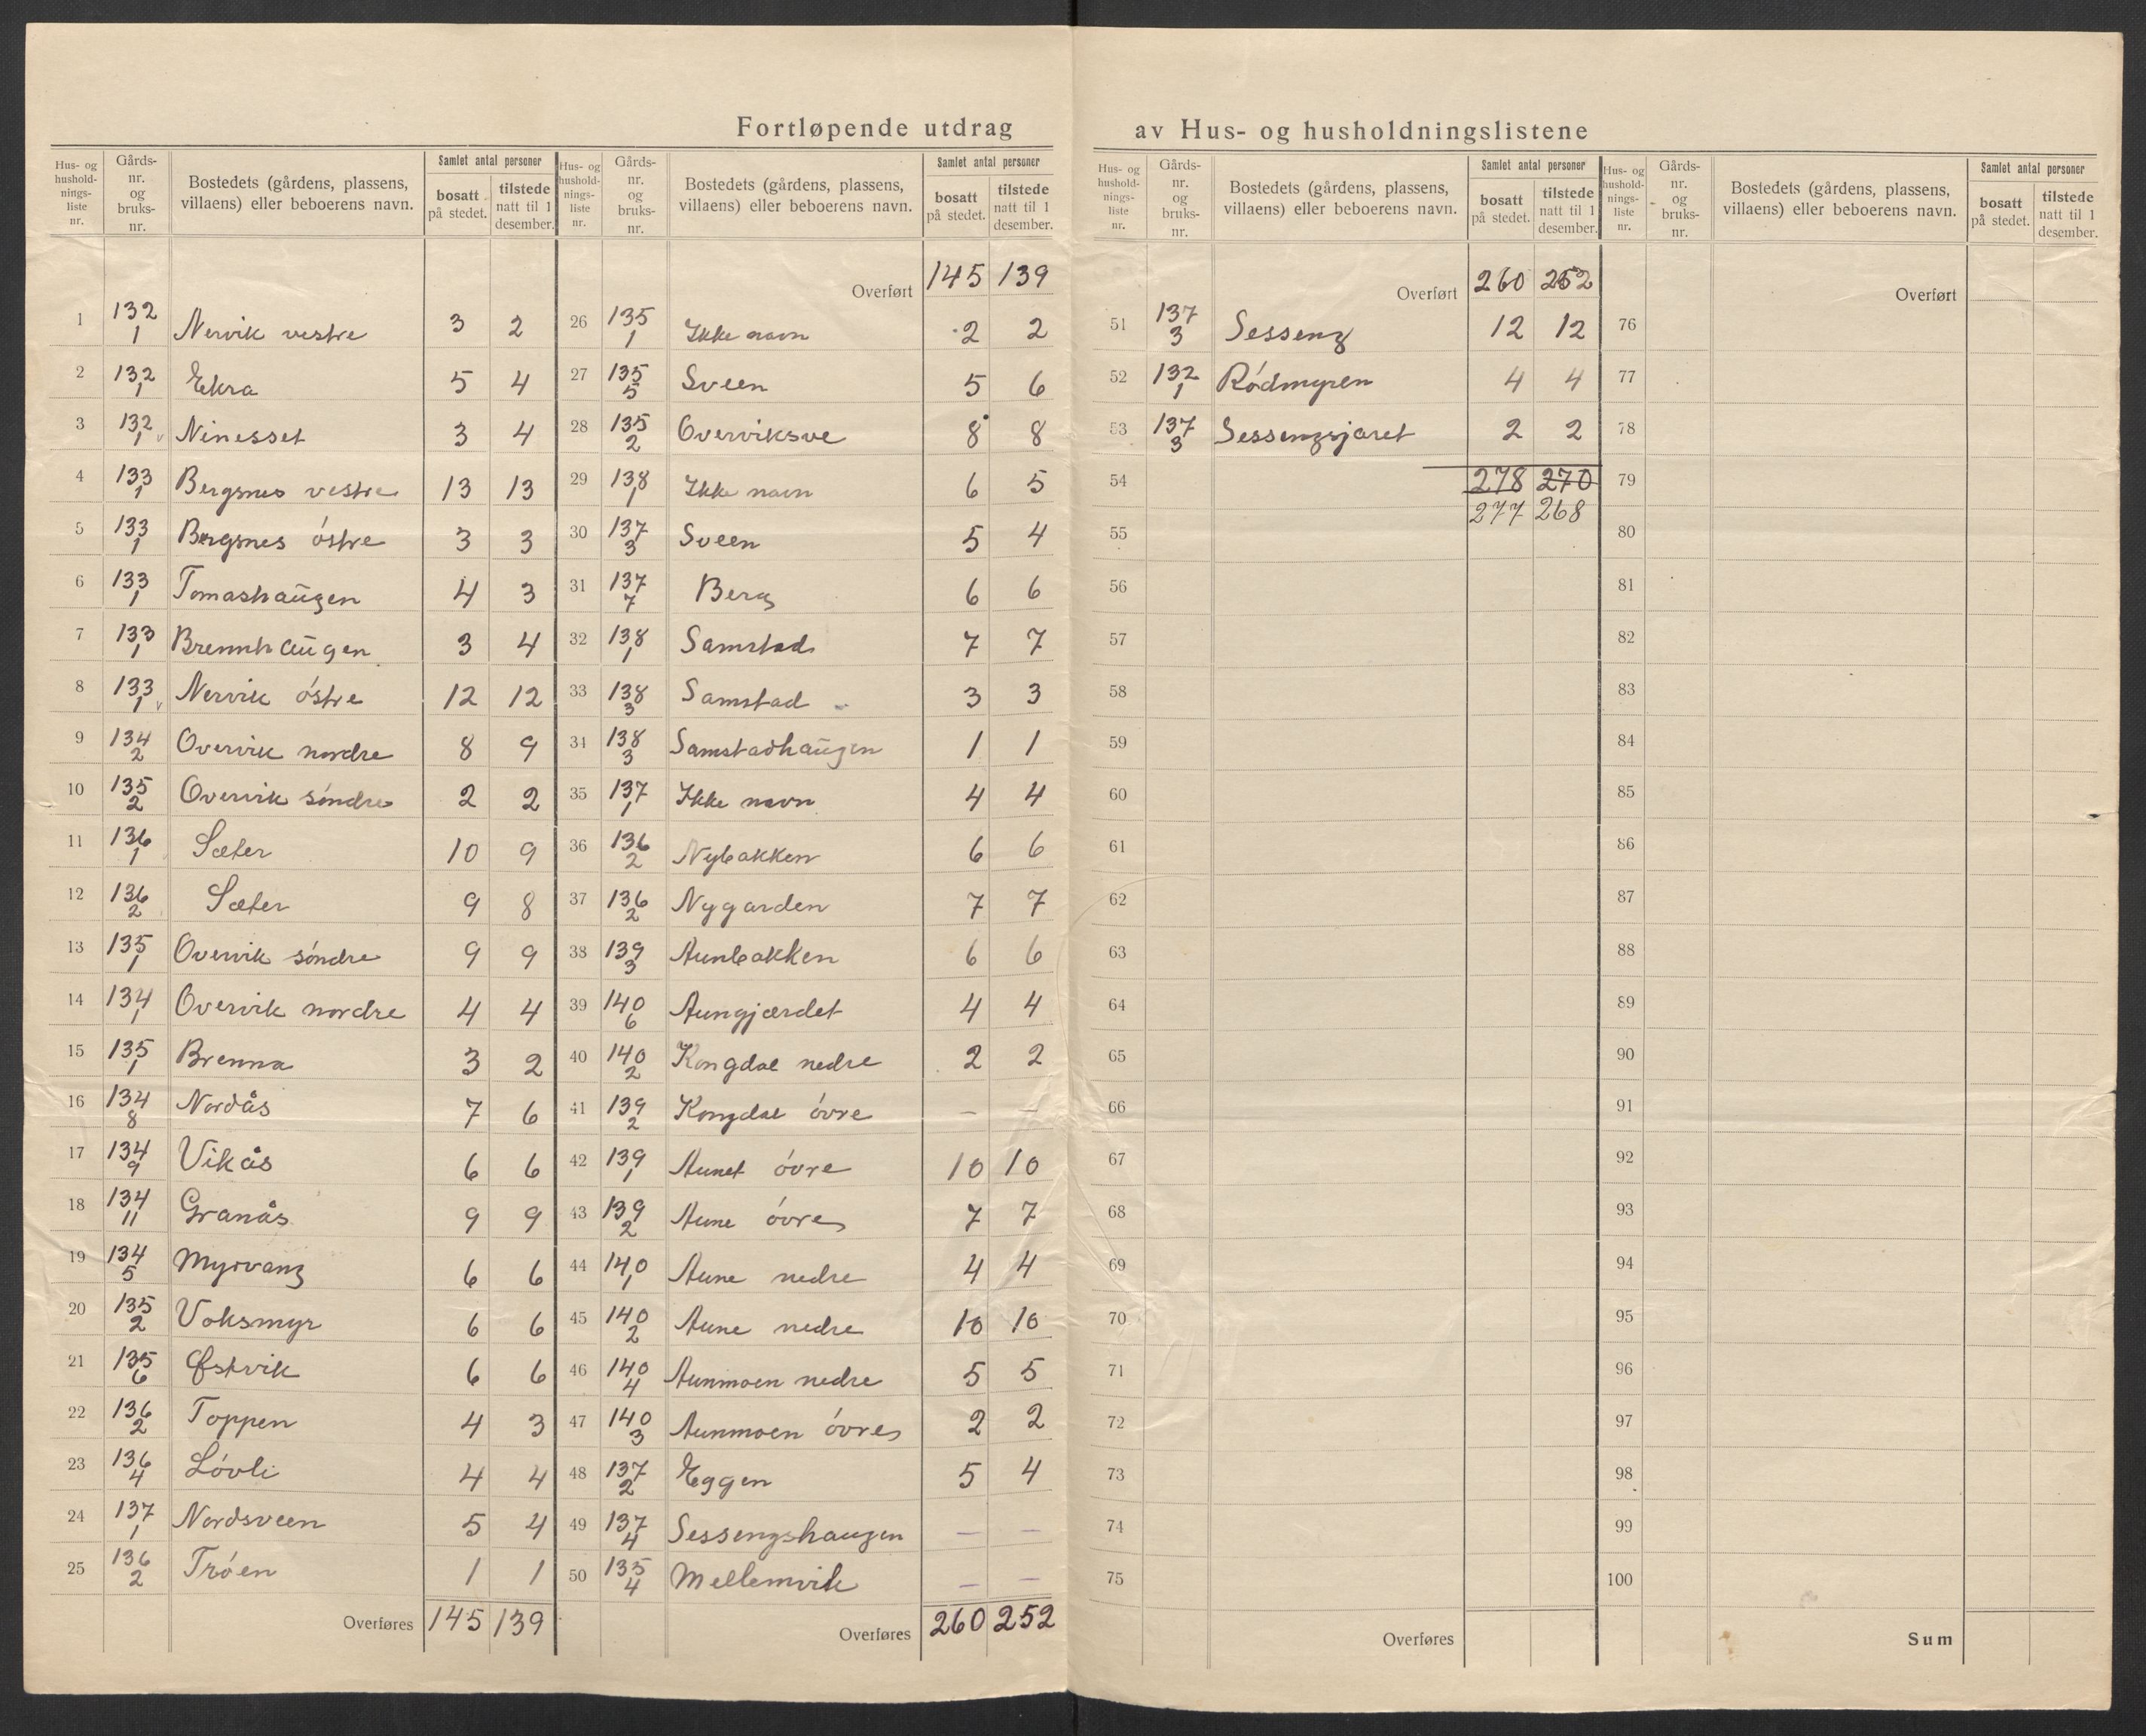 Fortløpende utdrag av Hus- og husholdningslistene
Hus- og hushold-nings-liste nr. | Gårds-nr. og bruks-nr. | Bostedets (gårdens, plassens, villaens) eller beboerens navn. | Samlet antal personer | bosatt på stedet. | tilstede natt til 1 desember.
1 132/1 Nervik vestre 3 2
2 132/1 Ekra 5 4
3 132/1 Ninesset 3 4
4 133/1 Bergsnes vestre 13 13
5 133/1 Bergsnes östre 3 3
6 133/1 Tomashaugen 4 3
7 133/1 Brennhaugen 3 4
8 133/1 Nervik östre 12 12
9 134/2 Overvik nordre 8 9
10 135/2 Overvik söndre 2 2
11 136/1 Sæter 10 9
12 136/2 Sæter 9 8
13 135/1 Overvik söndre 9 9
14 134/1 Overvik nordre 4 4
15 135/1 Brenna 3 2
16 134/8 Nordås 7 6
17 134/9 Vikås 6 6
18 134/11 Granås 9 9
19 134/5 Myrvang 6 6
20 135/2 Voksmyr 6 6
21 135/6 Østvik 6 6
22 136/2 Toppen 4 3
23 136/4 Lóvli 4 4
24 137/1 Nordsveen 5 4
25 136/2 Tróen 1 1
Overføres 145 139
Hus- og hushold-nings-liste nr. | Gårds-nr. og bruks-nr. | Bostedets (gårdens, plassens, villaens) eller beboerens navn. | Samlet antal personer | bosatt på stedet. | tilstede natt til 1 desember.
Overført 145 139
26 135/1 Ikke navn 2 2
27 135/5 Sveen 5 6
28 135/2 Overviksve 8 8
29 138/1 Ikke navn 6 5
30 137/3 Sveen 5 4
31 137/7 Berg 6 6
32 138/1 Samstad 7 7
33 138/3 Samstad 3 3
34 138/3 Samstadhaugen 1 1
35 137/1 Ikke navn 4 4
36 136/2 Nybakken 6 6
37 136/2 Nygarden 7 7
38 139/3 Aunbakken 6 6
39 140/6 Aungjærdet 4 4
40 140/2 Kongdal nedre 2 2
41 139/2 Kongdal óvre – –
42 139/1 Aunet óvre 10 10
43 139/2 Aune óvre 7 7
44 140/1 Aune nedre 4 4
45 140/2 Aune nedre 10 10
46 140/4 Aunmoen nedre 5 5
47 140/3 Aunmoen óvre 2 2
48 137/2 Eggen 5 4
49 137/4 Sessengshaugen – –
50 135/4 Mellemvik – –
Overføres 260 252
Hus- og hushold-nings-liste nr. | Gårds-nr. og bruks-nr. | Bostedets (gårdens, plassens, villaens) eller beboerens navn. | Samlet antal personer | bosatt på stedet. | tilstede natt til 1 desember.
Overført 260 252
51 137/3 Sesseng 12 12
52 132/1 Ródmyren 4 4
53 137/3 Sessengsjaret 2 2
54 278 270
277 268
55
56
57
58
59
60
61
62
63
64
65
66
67
68
69
70
71
72
73
74
75
Overføres
Hus- og hushold-nings-liste nr. | Gårds-nr. og bruks-nr. | Bostedets (gårdens, plassens, villaens) eller beboerens navn. | Samlet antal personer | bosatt på stedet. | tilstede natt til 1 desember.
Overført
76
77
78
79
80
81
82
83
84
85
86
87
88
89
90
91
92
93
94
95
96
97
98
99
100
Sum